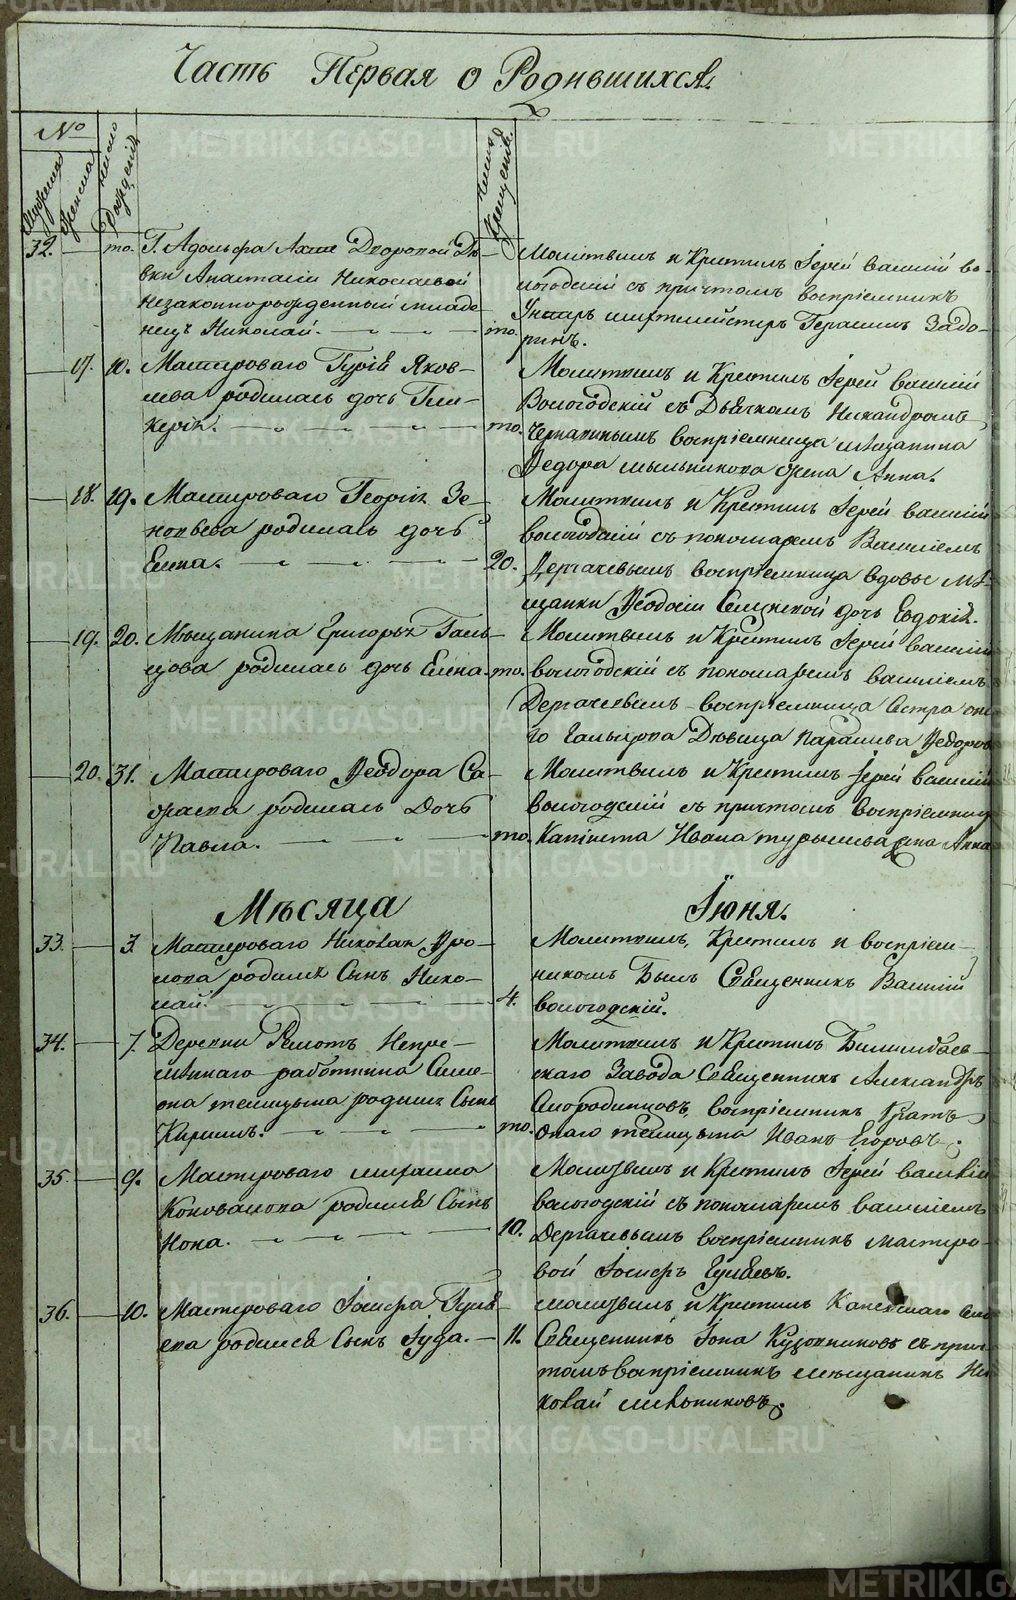 Часть Первая о Родившихся.
№
Мужеска
Женска
Число Рожденія
Число Крещенія.
32. то. Г. Адольфа Дворовой Дѣ-
вки Анастасіи Николаевой
незаконнорожденный младе-
нецъ Николай. то.
Молитвилъ и Крестилъ Іерей Василій Во-
логодскій съ причтомъ воспріемникъ
Унтеръ шихтмейстеръ Герасимъ Задо-
ринъ.
17. 10. Мастероваго Гурія Яков-
лева родилась дочь Гли-
керія. то.
Молитвилъ и Крестилъ Іерей Василій
Вологодскій съ Дьячкомъ Никандромъ
воспріемница мѣщанина
Федора Мыльникова жена Анна.
18. 19. Мастероваго Георгія Зе-
новьева родилась дочь
Елена. 20.
Молитвилъ и Крестилъ Іерей Василій
Вологодскій съ пономаремъ Василіемъ
Дергачевымъ воспріемница вдовы мѣ-
щанки Ѳеодосіи дочь Евдокія.
19. 20. Мѣщанина Григорья Галь-
цова родилась дочь Елена. то.
Молитвилъ и Крестилъ Іерей Василій
Вологодскій съ пономаремъ Василіемъ
Дергачевымъ воспріемница сестра
Гальцова Дѣвица Парасковья Ѳедоров
20. 31. Мастероваго Ѳеодора Са-
родилась Дочь
Павла. то.
Молитвилъ и Крестилъ Іерей Василій
Вологодскій съ причтомъ воспріемница
Ивана жена Анна
Мѣсяца Іюня.
33. 3. Мастероваго Николая Фро-
лова родился Сынъ Нико-
лай. 4.
Молитвилъ, Крестилъ и воспріем-
никомъ Былъ Священникъ Василій
Вологодскій.
34. 7. Деревни Непре-
мѣннаго работника Симе-
она родился Сынъ
Кириллъ. то.
Молитвилъ и Крестилъ Билимбаев-
скаго Завода Священникъ Александръ
Смородинцовъ, воспріемникъ
Иванъ Егоровъ.
35. 9. Мастероваго Михаила
Коновалова родился Сынъ
Иона. 10.
Молитвилъ и Крестилъ Іерей Василій
Вологодскій съ пономаремъ Василіемъ
Дергачевымъ воспріемникъ мастеро-
вой Іосифъ Гуляевъ.
36. 10. Мастероваго Іосифа Гуля-
ева родился Сынъ Іуда. 11.
Молитвилъ и Крестилъ
Священникъ Іона Кузовниковъ съ прич-
томъ воспріемникъ мѣщанинъ Ни-
колай
METRIKI.GASO-URAL.RU